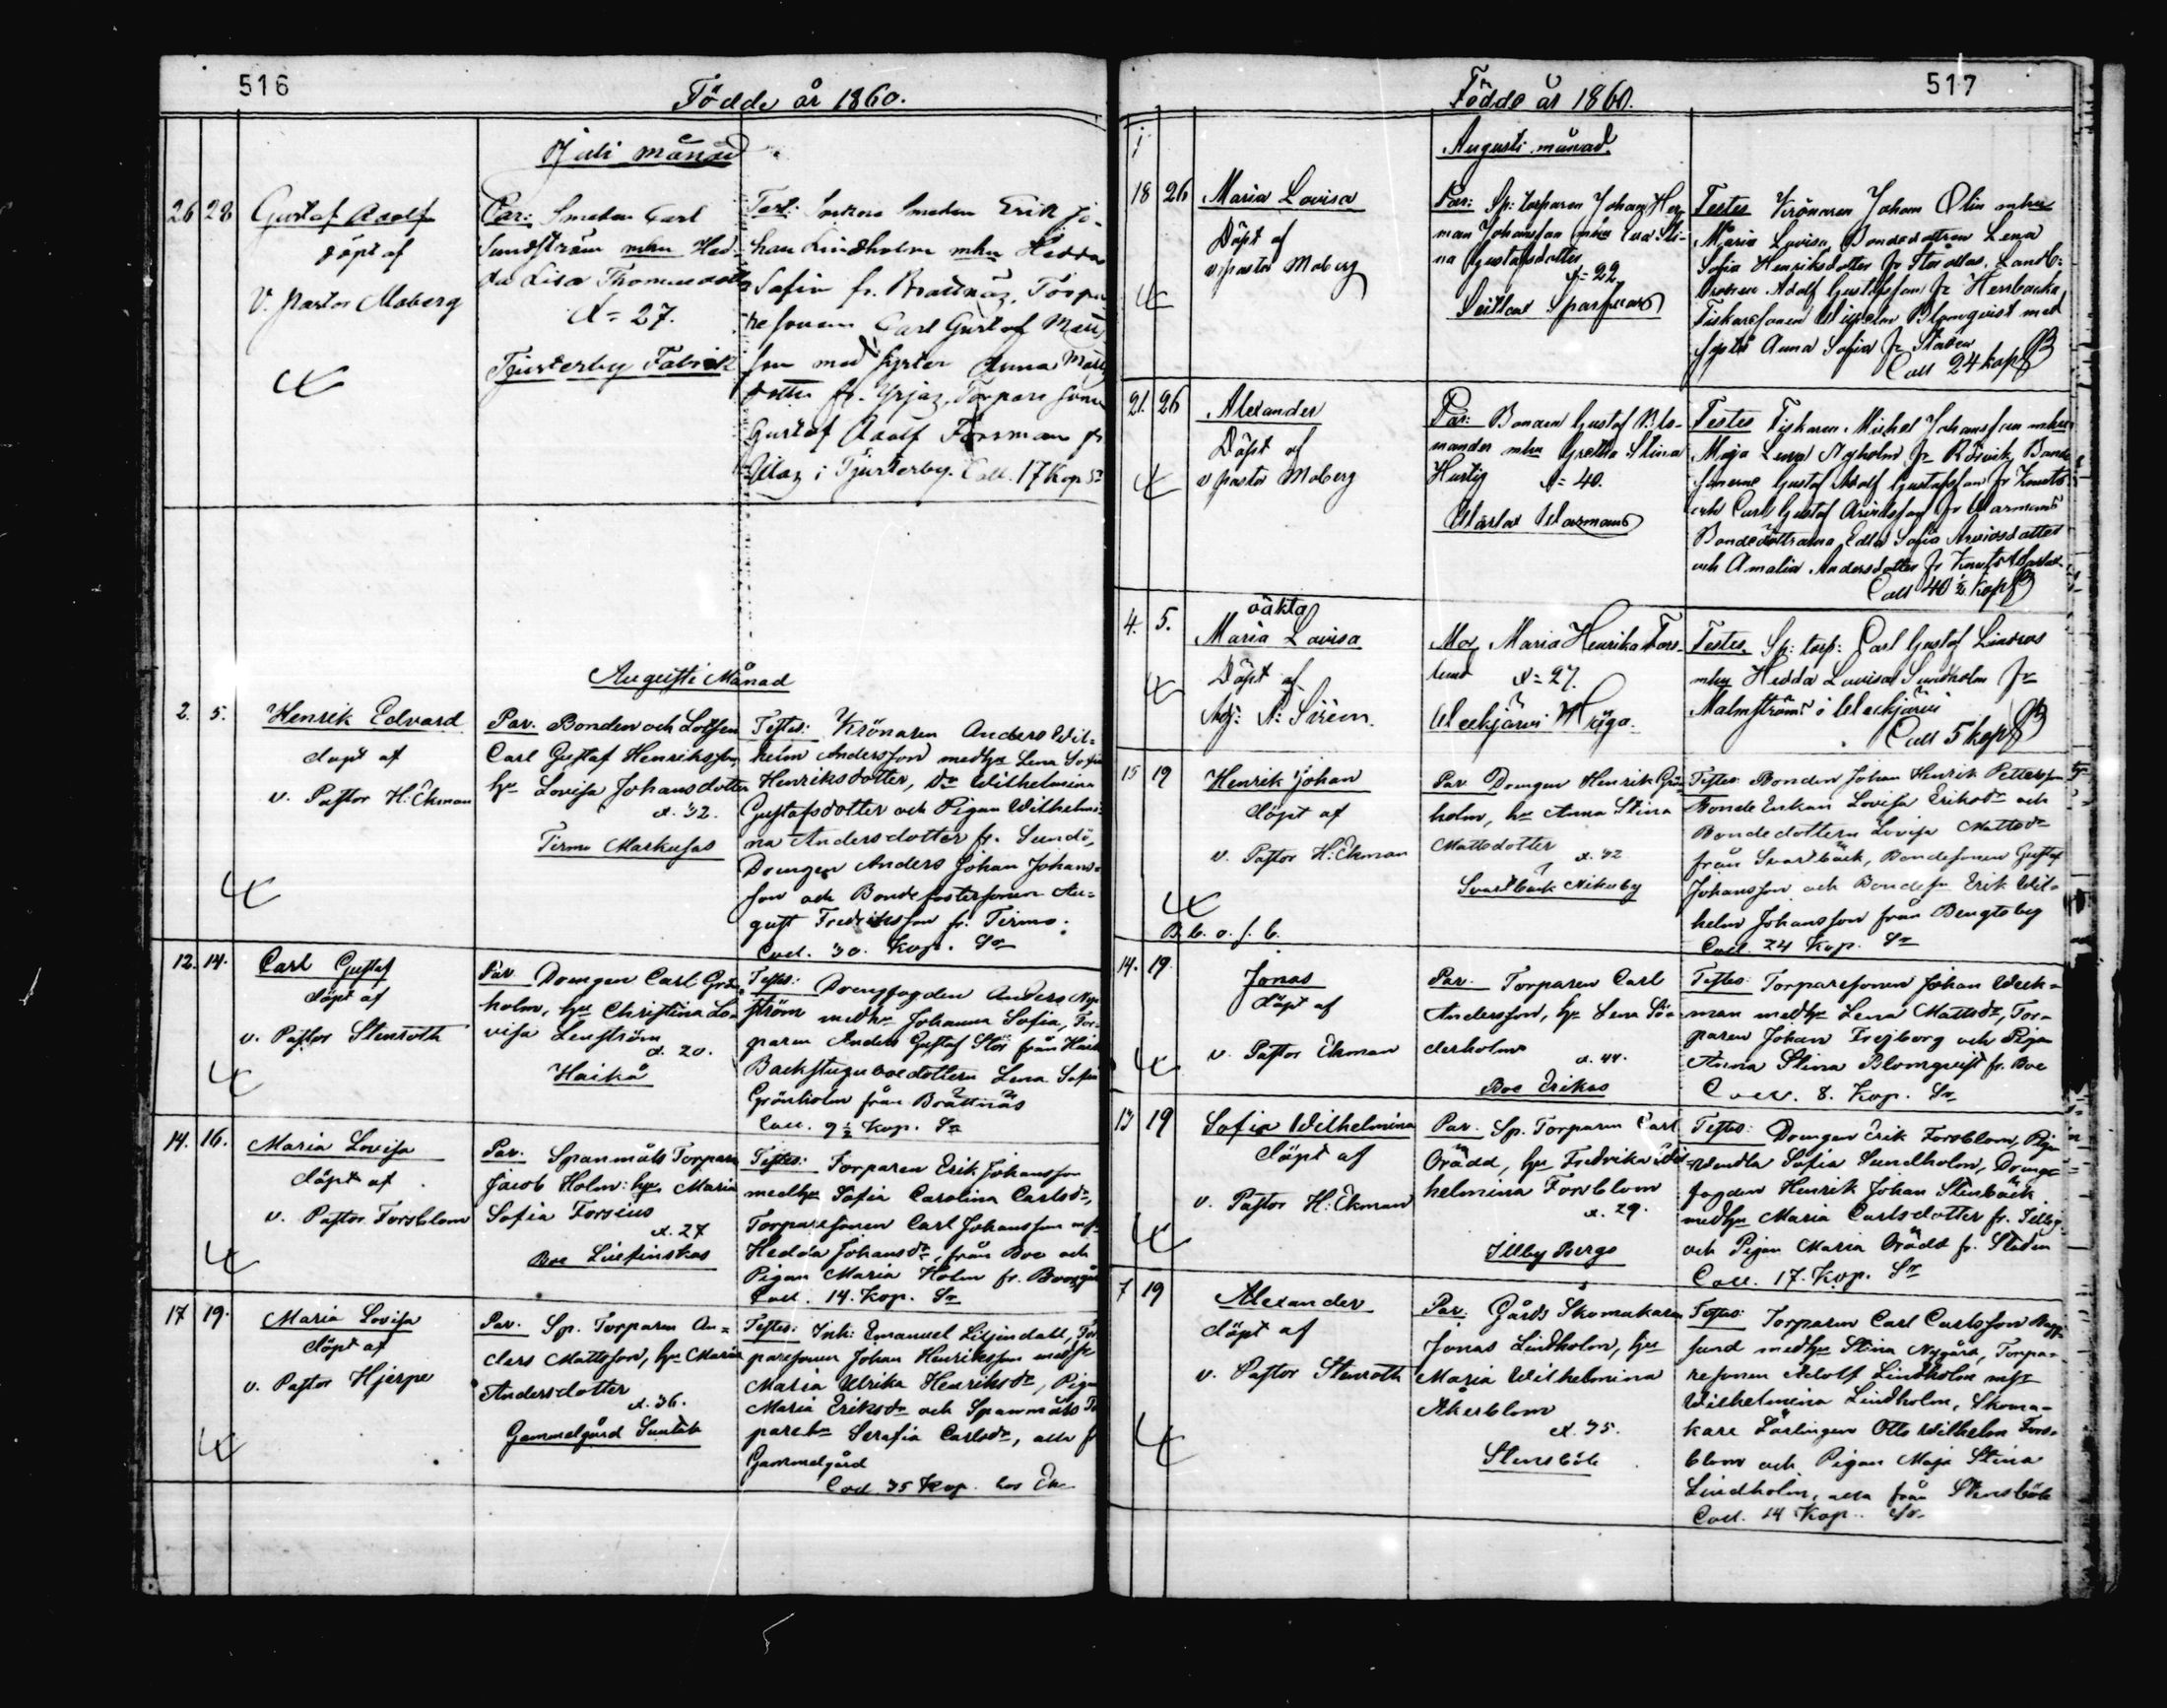 516
Födde år 1860.
Juli månad
26 28 Gustaf Adolf
döpt af
V. Pastor Moberg
Par: Smeden Carl
Sundström mhu Hed-
da Lisa Thomasdotter
d = 27.
Tjusterby Fabrik
Test: Smeden Erik Jo-
han Lindholm mhu Hedda
Sofia fr. Brattnäs, Torpa-
resonen Carl Gustaf Matts
son med syster Anna Matts
dotter fr. Torpare sonen
Gustaf Adolf Forsman fr
i Tjusterby. Coll. 17 Kop
Augusti Månad
2. 5. Henrik Edvard
döpt af
v. Pastor H: Ekman
Par. Bonden och Lotsen
Carl Gustaf Henriksson,
hu Lovisa Johansdotter
d. 32.
Tirmo Markusas
Testes: Krönaren Anders Wil-
helm Andersson medhu Lena Sofia
Henriksdotter, Dr Wilhelmina
Gustafsdotter och Pigan Wilhelmi-
na Andersdotter fr. Sundö,
Drengen Anders Johan Johans-
son och Bonde fostersonen Au-
gust Fredriksson fr. Tirmo.
Coll. 30. Kop. Sn
12. 14. Carl Gustaf
döpt af
v. Pastor Stenroth
Par Drengen Carl Grön-
holm, hu Christina Lo-
visa Lenström
d. 20.
Haikå
Testes: Drengfogden Anders Ny
ström medhu Johanna Sofia, Tor-
paren Anders Gustaf Stör från Haikå
Backstuguboedottern Lena Sofia
Grönholm från Brattnäs
Coll. 9 ½ Kop. Sn
14. 16. Maria Lovisa
döpt af
v. Pastor Forsblom
Par. Spanmåls Torparen
Jacob Holm: hu Maria
Sofia Forsius
d. 27
Boe
Testes: Torparen Erik Johansson
medhu Sofia Carolina Carlsdr,
Torparesonen Carl Johansson
Hedda Johansdr, från Boe och
Pigan Maria Holm fr.
Coll. 14. Kop. Sn
17 19. Maria Lovisa
döpt af
v. Pastor Hjerpe
Par. Sp. Torparen An-
ders Mattsson, hu Maria
Andersdotter
d. 36.
Gammelgård
Testes: Inh: Emanuel Liljendall, Tor
paresonen Johan Henriksson medhu
Maria Ulrika Henriksdr, Pigan
Maria Eriksdr och Spanmåls
Serafia Carlsdr, alla fr
Gammelgård
Coll. 35 Kop.
517
Födde år 1860.
Augusti månad.
18 26 Maria Lovisa
Döpt af
v pastor Moberg
Par: Sp: torparen Johan Her-
man Johansson mhu Eva Sti-
na Gustafsdotter
d = 22
Testes Krönaren Johan Olin mhu
Maria Lovisa, Bondedottren Lena
Sofia Henriksdotter fr
Adolf Gustafsson fr Herrbacka
Fiskaresonen Wilhelm Blomqvist med
syster Anna Sofia fr Staden
Coll 24 kop
21. 26 Alexander
Döpt af
v pastor Moberg
Par: Bonden Gustaf Blo-
mander mhu Gretha Stina
Hurtig d = 40.
Testes Fiskaren Michel Johansson mhu
Maja Lena Nyholm fr Rösvik, Bonde
sönerne Gustaf Adolf Gustafsson fr Knuts
och Carl Gustaf Arvidsson fr
Bondedöttrarna Edla Sofia Arvidsdotter
och Amalia Andersdotter fr Knuts
Coll 40 ½ kop
4. 5. oäkta
Maria Lovisa
Döpt af
Adj: A: Sirèn.
Mod. Maria Henrika Fors-
lund d = 27.
Testes. Sp: torp: Carl Gustaf Lindroos
mhu Hedda Lovisa Sundholm fr
Malmströms i
Coll 5 kop
15 19 Henrik Johan
döpt af
v. Pastor H: Ekman
B. b. o. s. b.
Par Drengen Henrik Grön-
holm, hu Anna Stina
Mattsdotter
d. 32
Svartbäck Nikuby
Testes: Bonden Johan Henrik Pettersson
Bonde Enkan Lovisa Eriksdr och
Bondedottern Lovisa Mattsdr
från Svartbäck, Bondesonen Gustaf
Johansson och Bondesn Erik Wil-
helm Johansson från Bengtsby
Coll. 24 Kop. Sn
14. 19. Jonas
döpt af
v. Pastor Ekman
Par. Torparen Carl
Andersson, hu Lena Sö-
derholm
d. 44.
Boe Erikas
Testes: Torparesonen Johan Weck-
man medhu Lena Mattsdr, Tor-
paren Johan Frejborg och Pigan
Anna Stina Blomqvist fr. Boe
Coll. 8. Kop. Sn
13 19 Sofia Wilhelmina
döpt af
v. Pastor H: Ekman
Par. Sp. Torparen Carl
Orädd, hu Fredrika Wil-
helmina Forsblom
d. 29.
Illby Bergs
Testes: Drengen Erik Forsblom, Pigan
Wendla Sofia Sundholm, Dreng-
fogden Henrik Johan Stenbäck
medhu Maria Carlsdotter fr. Illby
och Pigan Maria Orädd fr. Staden
Coll. 17. Kop. Sn
7 19 Alexander
döpt af
v. Pastor Stenroth
Par. Gårds Skomakaren
Jonas Lindholm, hu
Maria Wilhelmina
Åkerblom
d. 35.
Stensböle
Testes: Torparen Carl Carlsson
sund medhu Stina Nygård, Torpa-
resonen Adolf Lindholm mhu
Wilhelmina Lindholm, Skoma-
kare Lärlingen Otto Wilhelm Fors-
blom och Pigan Maja Stina
Lindholm, alla från Stensböle
Coll. 14 Kop. Sn